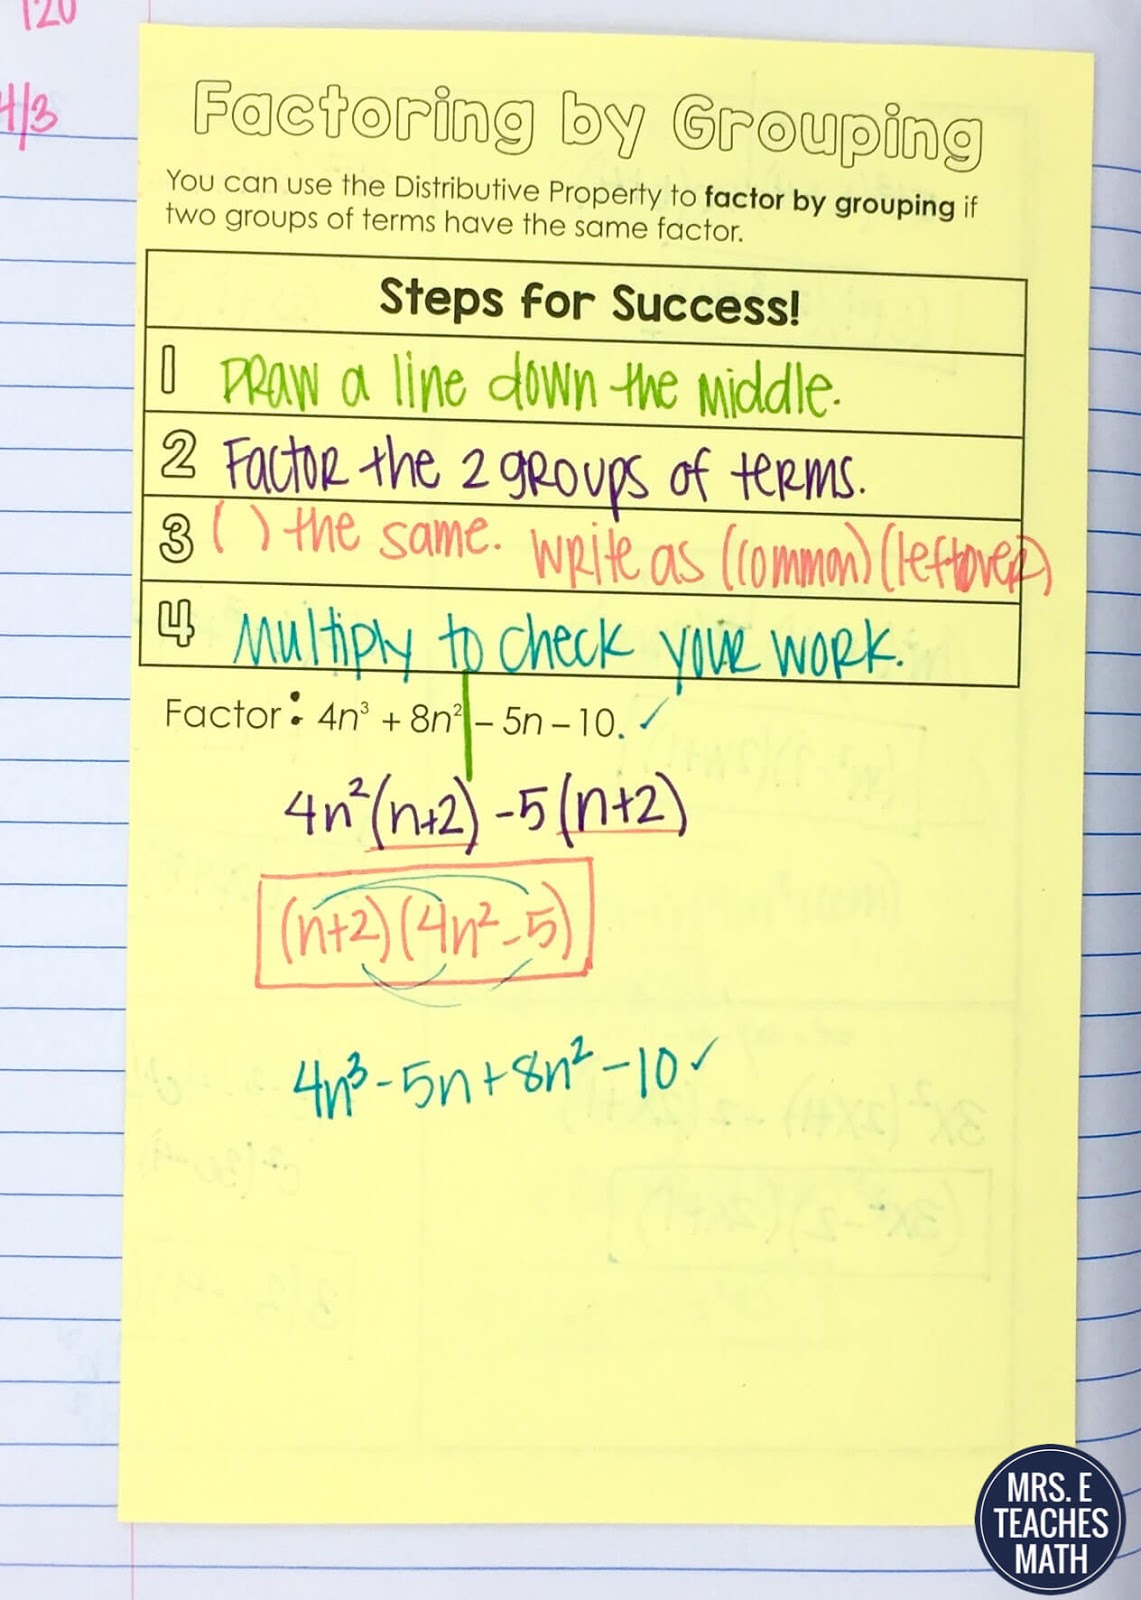 120
4/3
Factoring by Grouping
You can use the Distributive Property to factor by grouping if
two groups of terms have the same factor.
Steps for Success!
1 Draw a line down the middle.
2 Factor the 2 groups of terms.
3 ( ) the same. Write as (common)(leftover)
4 Multiply to check your work.
Factor: 4n³ + 8n² | – 5n – 10. ✓
4n²(n+2) -5(n+2)
(n+2)(4n²-5)
4n³-5n+8n²-10✓
MRS. E
TEACHES
MATH